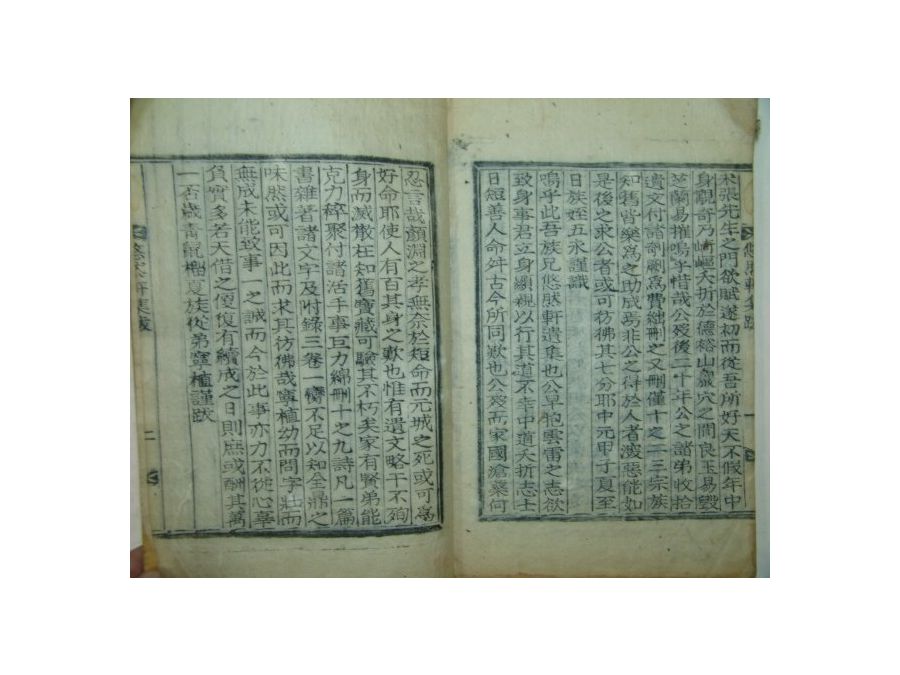 米張先生之門欲賦遂初而從吾所好天不假年中
身覯奇乃崎嶇夭折於德裕山巖穴之間良玉易毁
芝蘭易摧嗚乎惜哉公歿後二十年公之諸弟收拾
遺文付諸剞劂爲費絀刪之又刪僅十之二三宗族
知舊皆樂爲之助成焉非公之得於人者深惡能如
是後之求公者或可彷彿其七分耶中元甲子夏至
日族姪五永謹識
嗚乎此吾族兄悠然軒遺集也公早抱雲雷之志欲
致身事君立身顯親以行其道不幸中道夭折志士
日短善人命舛古今所同歎也公歿而家國滄桑何
忍言哉顔淵之孝無奈於短命而元城之死或可爲
好命耶使人有百其身之歎也惟有遺文略干不殉
身而滅散在知舊寶藏可驗其不朽矣家有賢弟能
克力稡聚付諸活手事巨力綿刪十之九詩凡一篇
書雜著諸文字及附錄三卷一臠不足以知全鼎之
味然或可因此而求其彷彿哉寗植幼而同字壯而
無成未能致事一之誠而今於此事亦力不從心辜
負實多若天借之便復有續成之日則庶或酬其萬
一否歲靑鼠榴夏族從弟寗植謹跋
悠然軒集跋
二
悠然軒集跋
一